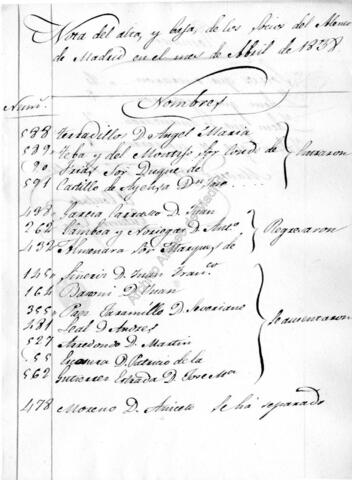 Nota del alta, y baja, de los Socios del Ateneo
de Madrid en el mes de Abril de 1838
Num.s Nombres
588 Terradillo D. Angel Maria
589 Teba y del Montijo Sor Conde de
590 Frias Sor Duque de
591 Castillo de Ayelsa Dn
Entraron
438 Garcia Carrasco D. Juan
262 Gamboa y Noriega D. Anto.
432 Almenara Sor Marques de
Regresaron
145 Sineris D. Juan Franco
164 Baroni D. Juan
355 Paez Jaramillo D. Severiano
481 Leal D. Andres
527 Arredondo D. Martin
55 Escosura D. Patricio de la
562 Gutierrez Estrada D. Jose Ma
Se ausentaron
478 Moreno D. Aniceto Se ha separado